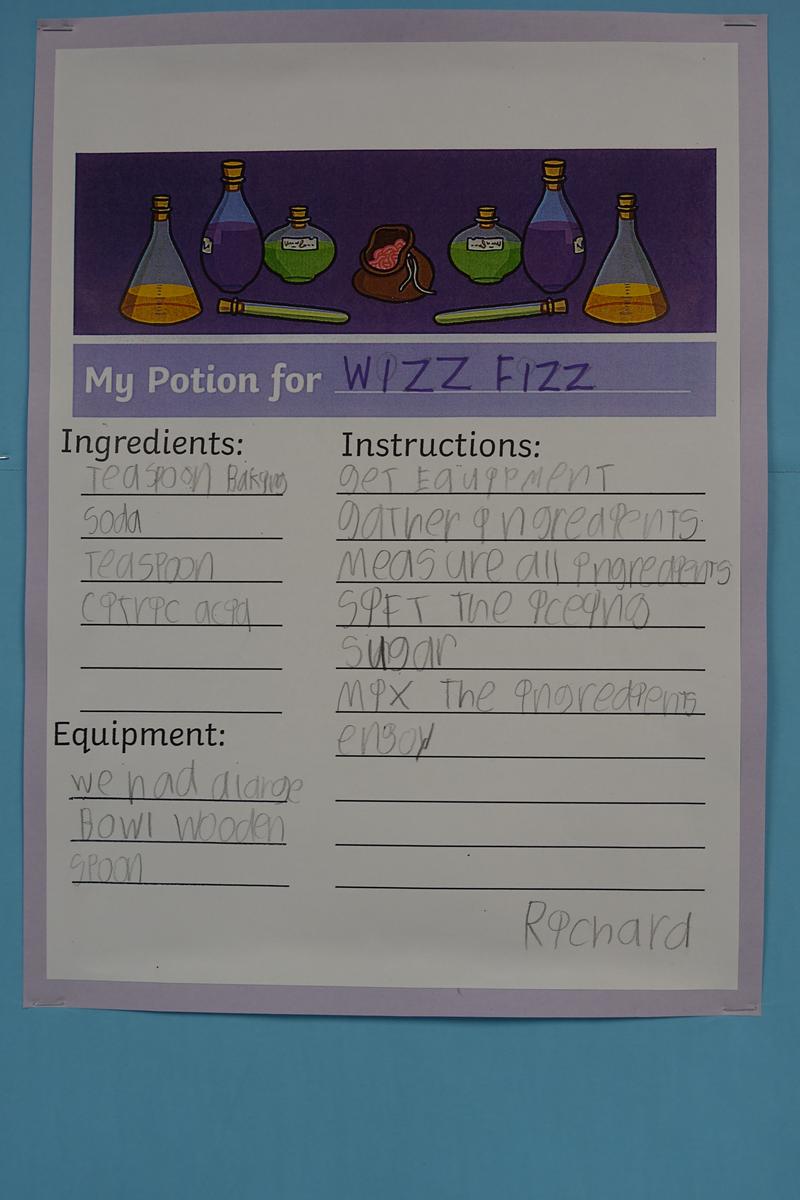 My Potion for WIZZ FIZZ
Ingredients:
Teaspoon Baking
Soda
Teaspoon
Citric acid
Equipment:
we had a large
Bowl wooden
spoon
Instructions:
get Equipment
gather ingredients
measure all ingredients
Sift The iceing
Sugar
Mix The ingredients
enjoy
Richard